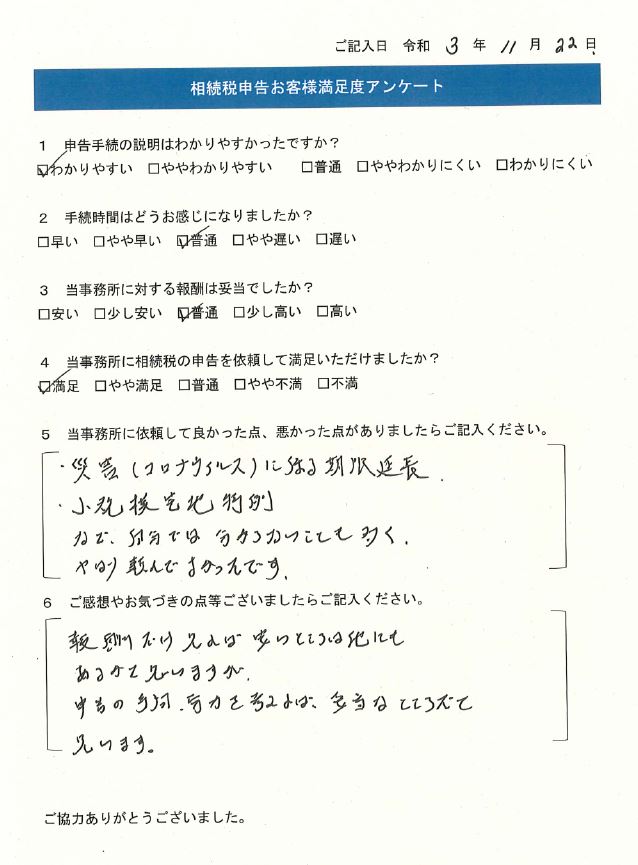 ご記入日 令和 3 年 11 月 22 日
相続税申告お客様満足度アンケート
1 申告手続の説明はわかりやすかったですか？
☑わかりやすい □ややわかりやすい □普通 □ややわかりにくい □わかりにくい
2 手続時間はどうお感じになりましたか？
□早い □やや早い ☑普通 □やや遅い □遅い
3 当事務所に対する報酬は妥当でしたか？
□安い □少し安い ☑普通 □少し高い □高い
4 当事務所に相続税の申告を依頼して満足いただけましたか？
☑満足 □やや満足 □普通 □やや不満 □不満
5 当事務所に依頼して良かった点、悪かった点がありましたらご記入ください。
・災害（コロナウイルス）に係る期限延長．
・小規模宅地特例
など、自分では分からないことも多く、
やはり頼んでよかったです。
6 ご感想やお気づきの点等ございましたらご記入ください。
報酬だけ見れば安いところは他にも
あるかと思いますが、
申告の手間、労力を考えれば、妥当なところだと
思います。
ご協力ありがとうございました。